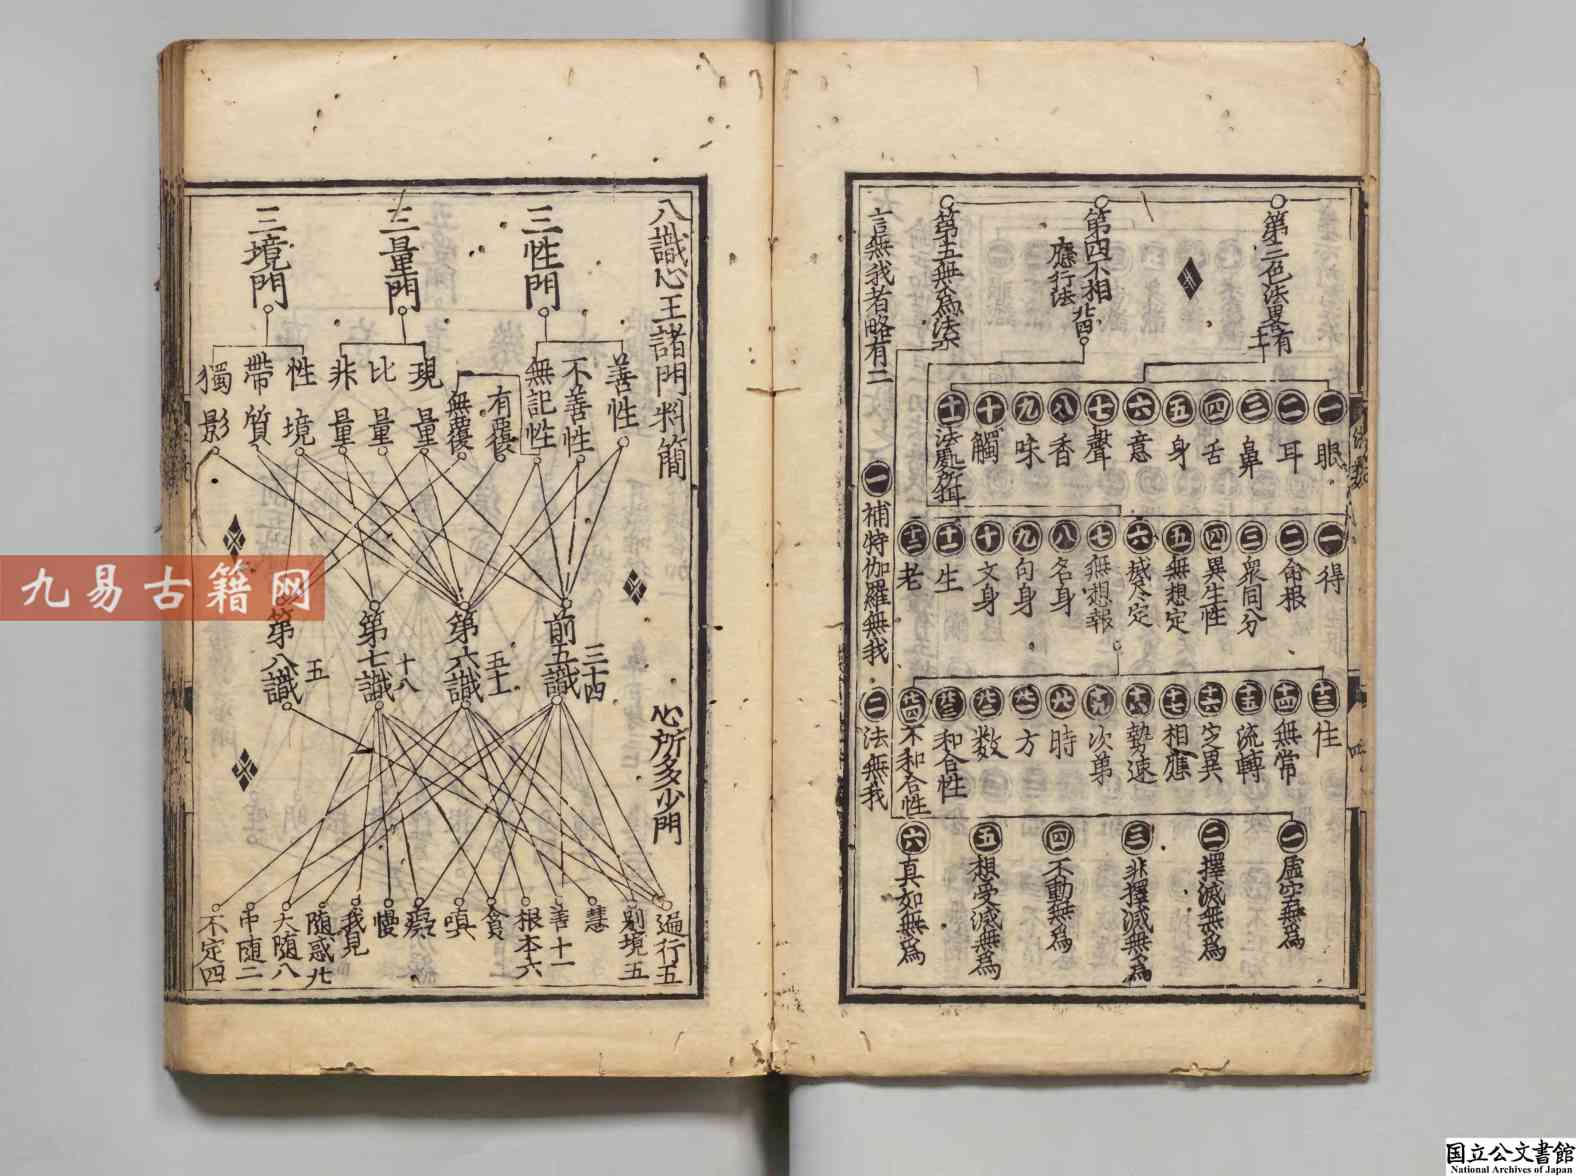 第三色法畧有十一
第四不相應行法廿四
第五無為法六
言無我者略有二
一眼
二耳
三鼻
四舌
五身
六意
七聲
八香
九味
十觸
十一法處所攝
一得
二命根
三衆同分
四異生性
五無想定
六滅尽定
七無想報
八名身
九句身
十文身
十一生
十二老
一補特伽羅無我
二法無我
十三住
十四無常
十五流轉
十六定異
十七相應
十八勢速
十九次第
廿時
廿一方
廿二数
廿三和合性
廿四不和合性
一虛空無為
二擇滅無為
三非擇滅無為
四不動無為
五想受滅無為
六真如無為
八識心王諸門料簡
三性門
三量門
三境門
善性
不善性
無記性
有覆
無覆
現量
比量
非量
性境
帶質
獨影
前五識
三十四
第六識
五十一
第七識
十八
第八識
五
心所多少門
遍行五
別境五
慧
善十一
根本六
貪
嗔
癡
慢
我見
随惑廿
大随八
中随二
不定四
九易古籍网
国立公文書館
National Archives of Japan